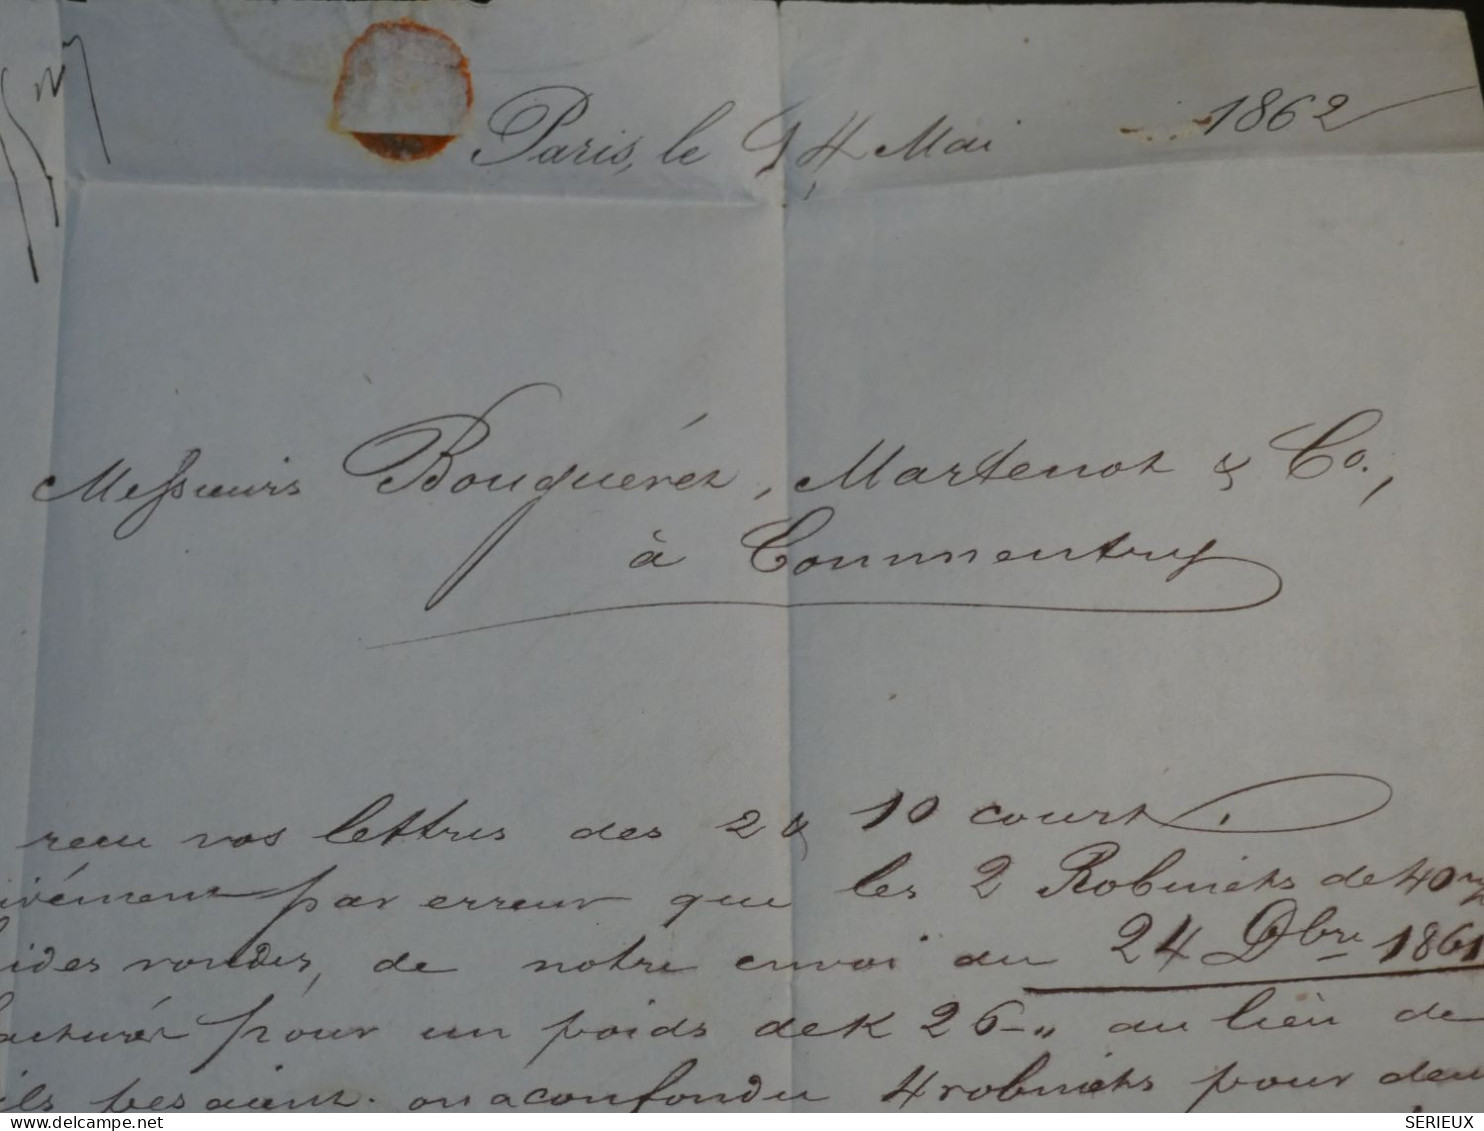 Paris, le 14 Mai 1862
Messieurs Bougueret, Martenot & Co.,
à Commentry
recu vos lettres des 2 & 10 court.
par erreur que les 2 Robinets de 40 m/m
rondes, de notre envoi du 24 Dbre 1861
facturés pour un poids de K 26 -" au lieu de
ils pesaient. on a confondu 4 robinets pour deux
delcampe.net
SERIEUX